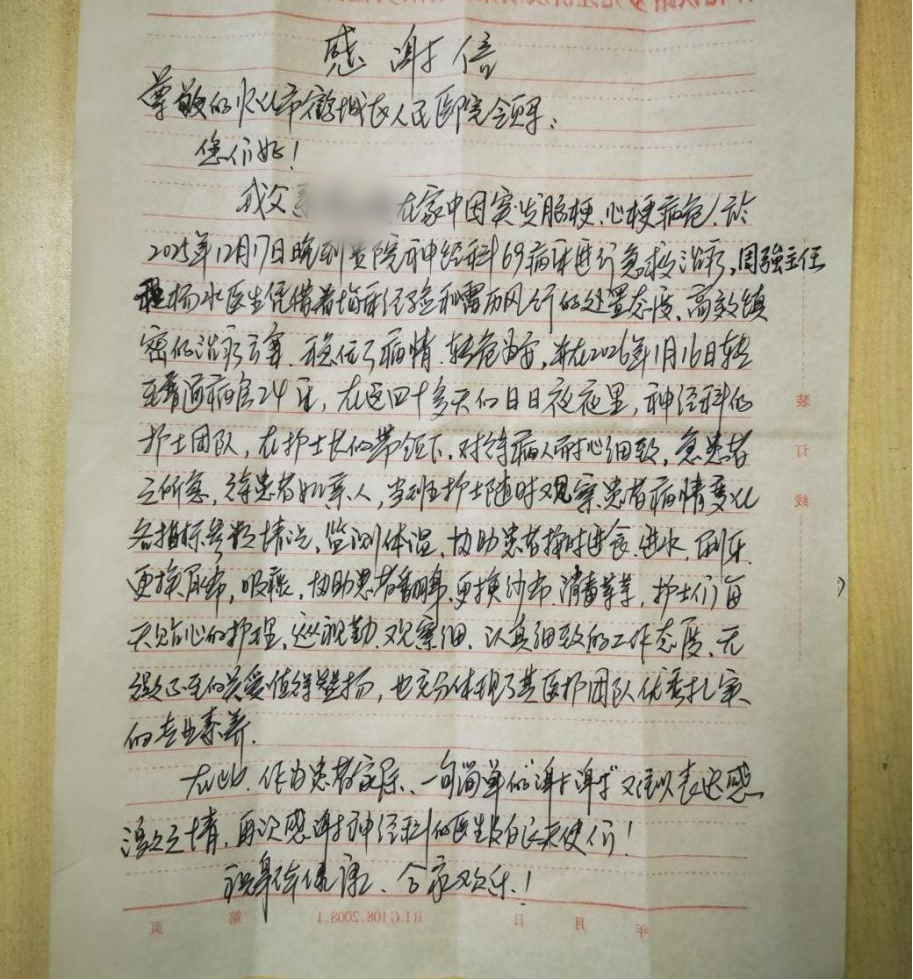 感谢信
尊敬的怀化市鹤城区人民医院领导：
您们好！
我父亲 在家中因突发脑梗、心梗病危！于
2025年12月17日晚到贵院神经科69病床进行急救治疗，周强主任
和杨水医生凭借着临床经验和雷厉风行的处置态度、高效缜
密的治疗方案，稳住了病情，转危为安，并在2026年1月16日转
至普通病房24床，在这四十多天的日日夜夜里，神经科的
护士团队，在护士长的带领下，对待病人耐心细致，急患者
之所急，待患者如亲人，当班护士随时观察患者病情变化
各指标参数情况，监测体温，协助患者按时进食、进水、刷牙、
更换尿布，吸痰，协助患者翻身、更换纱布、消毒等等，护士们每
天贴心的护理，巡视勤、观察细、认真细致的工作态度、无
微不至的关爱值得赞扬，也充分体现了贵医护团队优秀扎实
的专业素养。
在此，作为患者家属、一句简单的"谢谢"难以表达感
激之情，再次感谢神经科的医生及白衣天使们！
祝身体健康、合家欢乐！
装订线
年 月 日 RLG108.2008.1 第 页